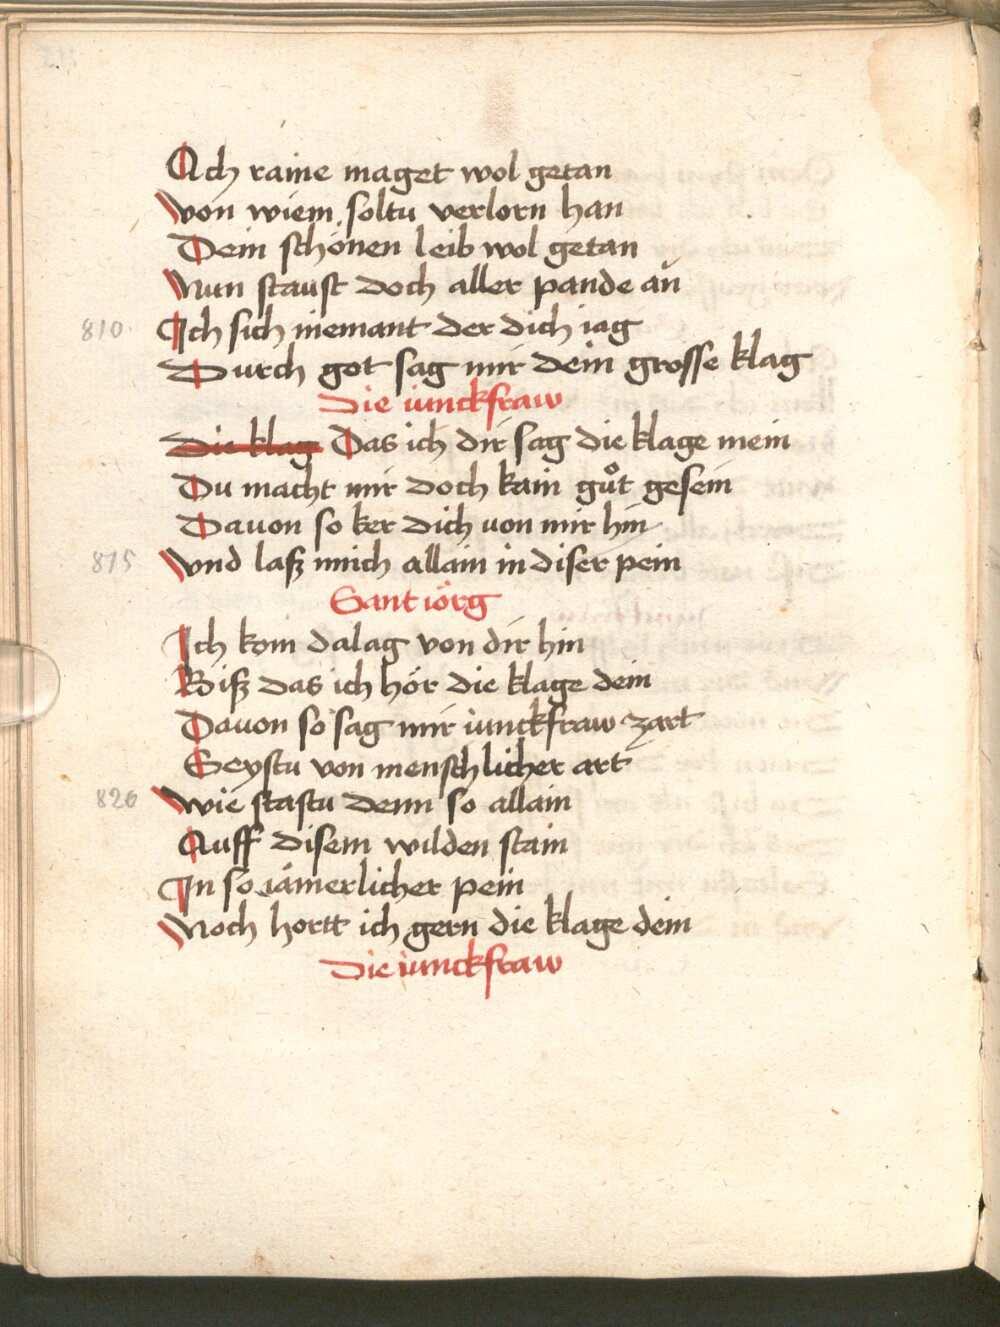 Ach raine maget wol getan
von wiem soltu verlorn han
Dein schönen leib wol getan
Nun staust doch aller pande an
810 Ich sich niemant der dich iag
Durch got sag mir dein grosse klag
Die iunckfraw
Die klag Das ich dir sag die klage mein
Du macht mir doch kain guͦt gesein
Dauon so ker dich von mir hin
815 vnd lasz mich allain in diser pein
Sant iörg
Ich kom dalag von dir hin
Bisz das ich hör die klage dein
Dauon so sag mir iunckfraw zart
Seystu von menschlicher art
820 wie stastu denn so allain
Auff disem wilden stain
In so iämerlicher pein
Noch hortt ich gern die klage dein
Die iunckfraw